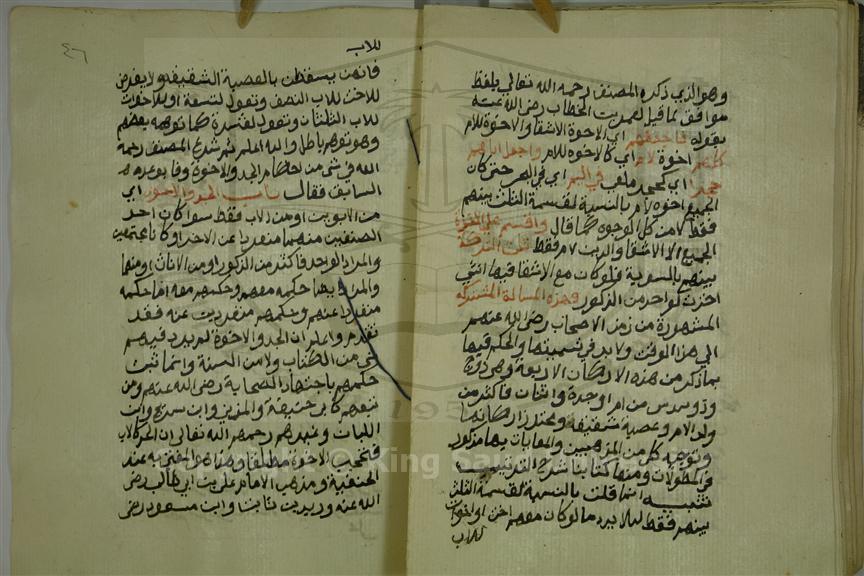 وهو الذي ذكره المصنف رحمه الله تعالى بلفظ
موافق لما قيل لعمر بن الخطاب رضي الله عنه
بقوله فاجعلهم اي الاخوة الاشقا والاخوة للام
كلهم اخوة لام اي كالاخوة للام واجعل اباهم
حجرا اي كحجر ملقى في اليم اي في البحر حتى كان
الجميع اخوة لام بالنسبة لقسمة الثلث بينهم
فقط لا من كل الوجوه كما قال واقسم على الاخوة
الجميع الاشقا والذين لام فقط ثلث التركة
بينهم بالسوية فلو كان مع الاشقا فيها انثى
اخذت كواحد من الذكور فهذه المسالة المشتركة
المشهورة من زمن الاصحاب رضي الله عنهم
الى هذا الوقت ولابد في تسميتها والحكم فيها
بما ذكر من هذه الاركان الاربعة وهي زوج
وذو سدس من ام او جدة واثنان فاكثر من
ولد الام وعصبة شقيقة ومحترزات اركانها
وتوجيه كل من المذهبين والمعايات بها مذكور
في المطولات ومنها كتابنا شرح الترتيب
تنبيه انما قلت بالنسبة لقسمة الثلث
بينهم فقط ليلا يرد ما لو كان معهم اخت او اخوات
للاب
٤٦
للاب
فانهن يسقطن بالعصبة الشقيقة ولا يفرض
للاخت للاب النصف وتعول لتسعة او للاخوات
للاب الثلثان وتعول لعشرة كما توهمه بعضهم
وهو توهم باطل والله اعلم ثم شرع المصنف رحمه
الله في شي من احكام الجد والاخوة وفا بوعده
السابق فقال باب الجد والاخوة اي
من الابوين او من الاب فقط سوا كان احد
الصنفين منهما منفردا عن الاخر او كانا مجتمعين
والمراد الواحد فاكثر من الذكور او من الاناث او منهما
والمراد بها حكمه معهم وحكمهم معه اما حكمه
منفردا عنهم وحكمهم منفردين عنه فقد
تقدم واعلم ان الجد والاخوة لم يرد فيهم
شي من الكتاب ولا من السنة وانما ثبت
حكمهم باجتهاد الصحابة رضي الله عنهم ومن
تبعهم كابي حنيفة والمزني وابن سريج وابن
اللبان وغيرهم رحمهم الله تعالى ان الجد كالاب
فيحجب الاخوة مطلقا وهذا هو المفتى به عند
الحنفية ومذهب الامام علي بن ابي طالب رضي
الله عنه وزيد بن ثابت وابن مسعود رضي
Copyright © King Saud University
1957